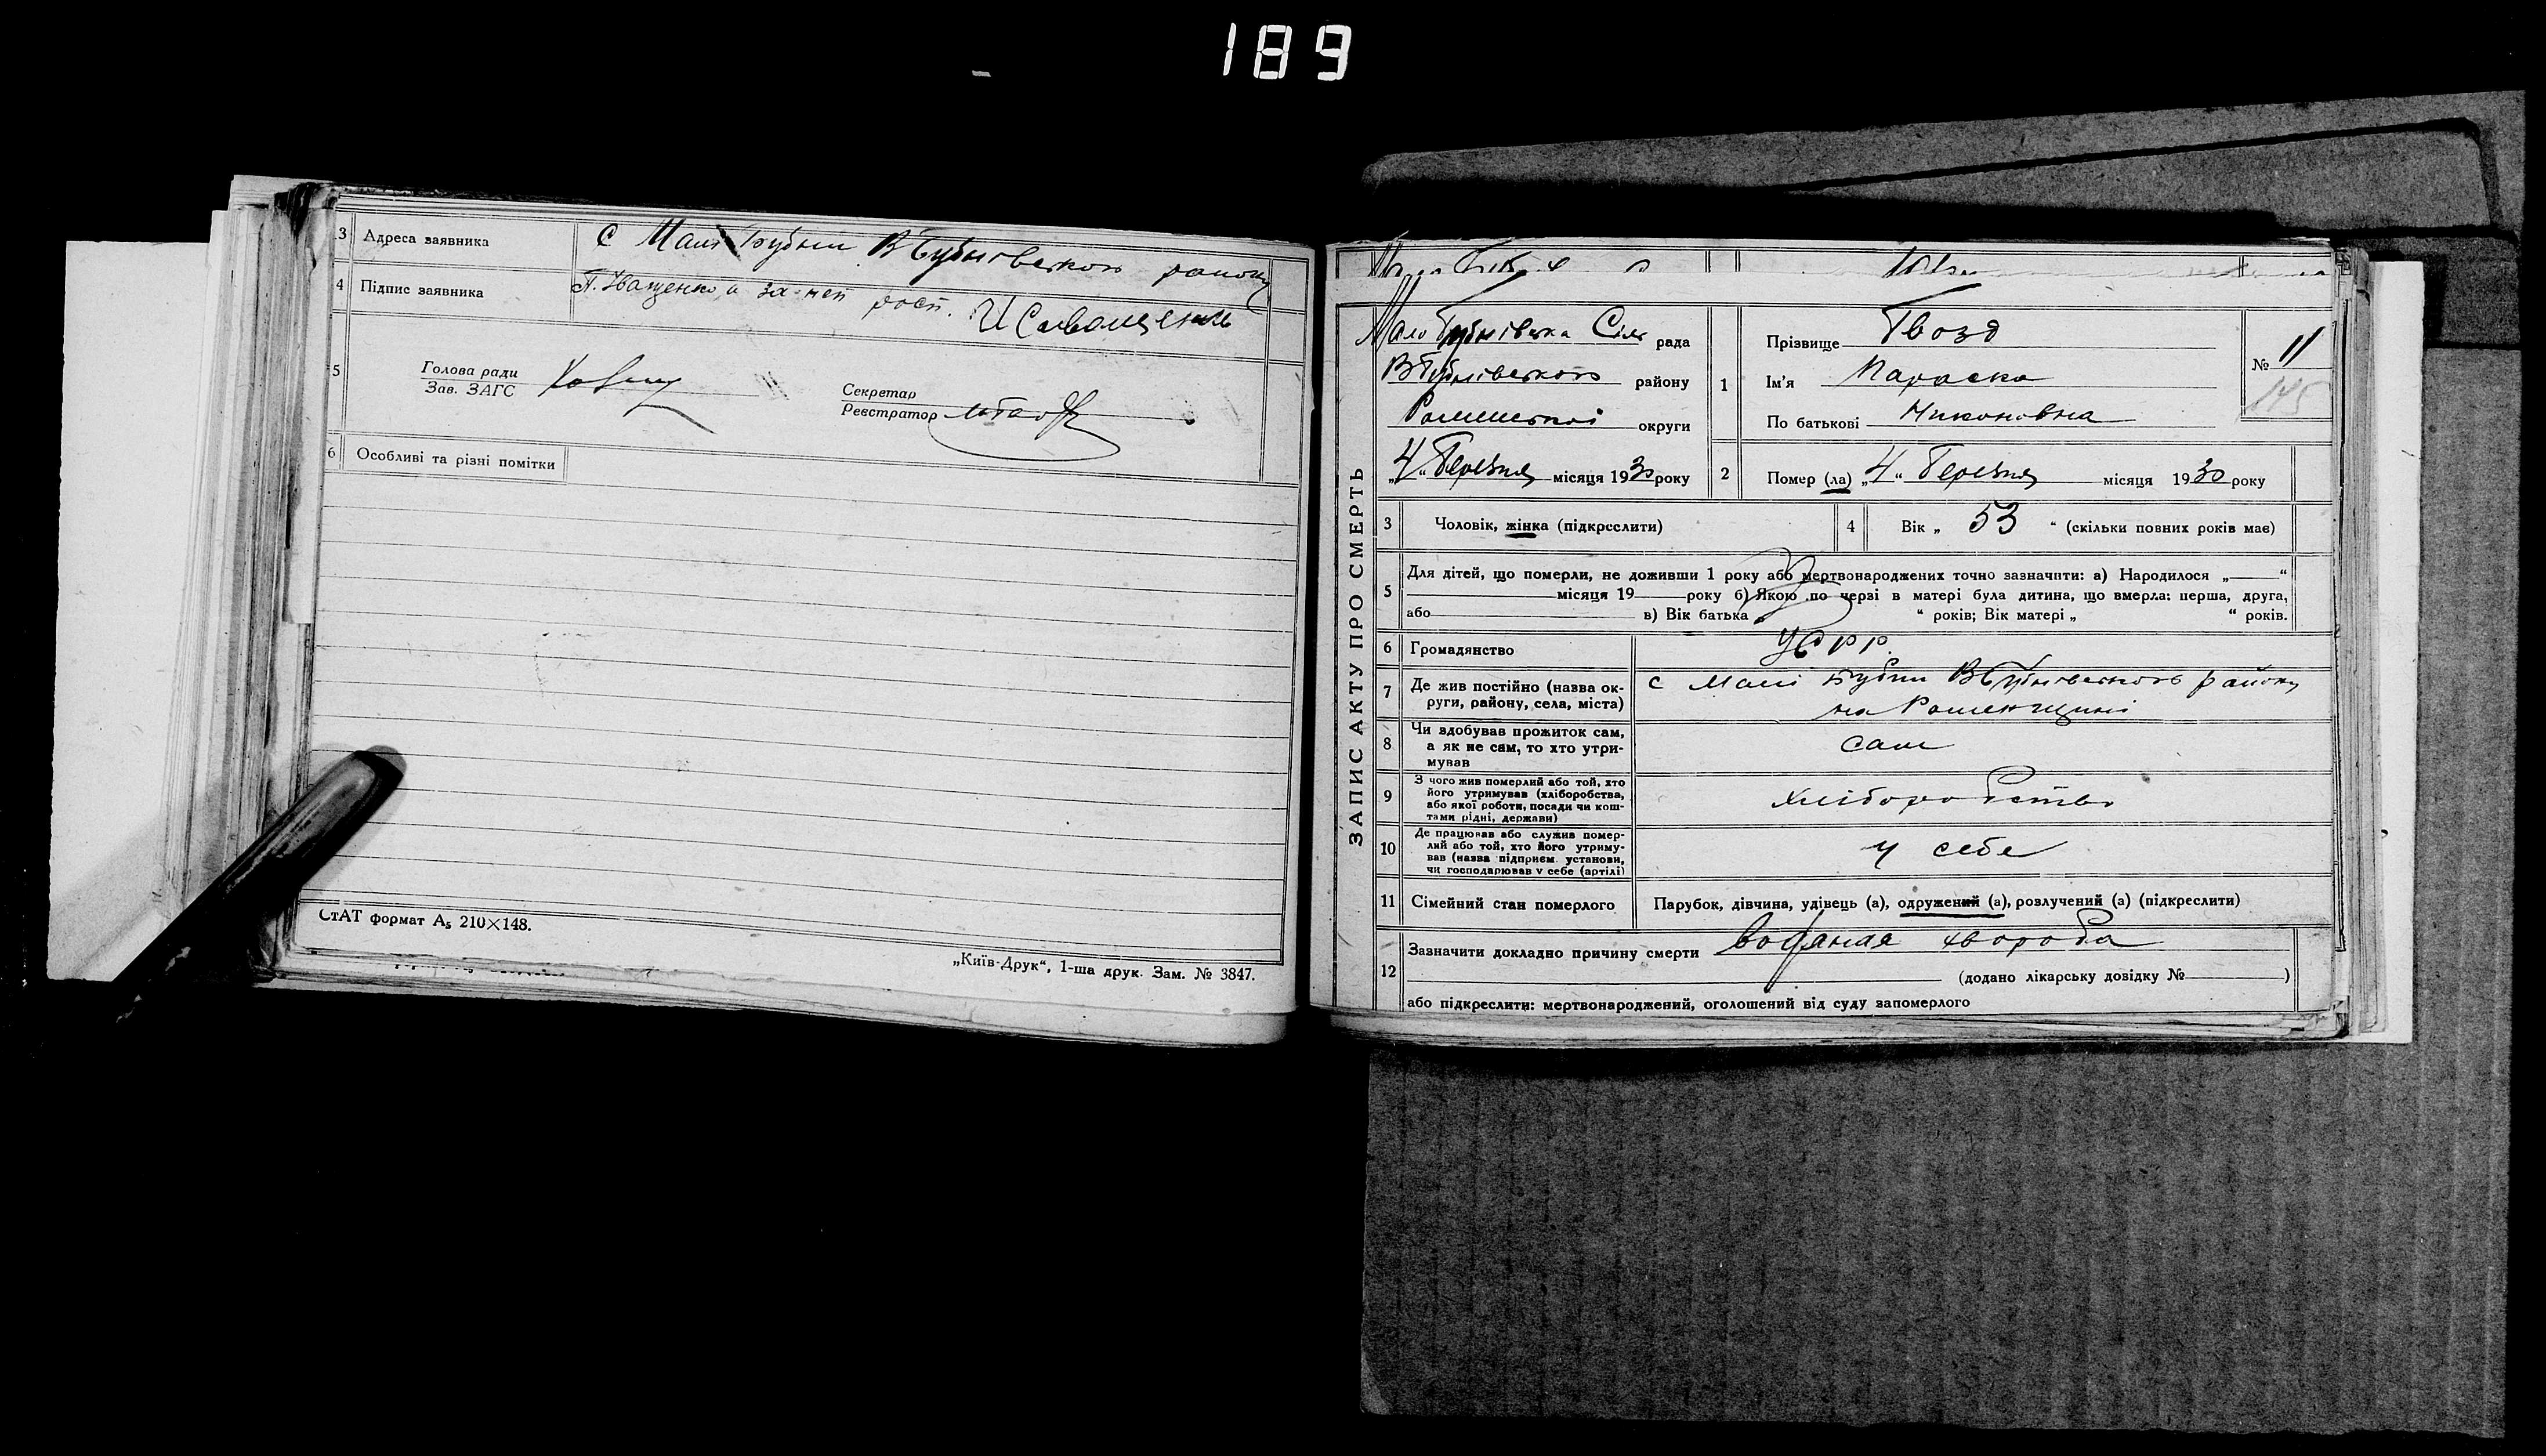 189
3 Адреса заявника С Малі Бубни ВБубнівського району
4 Підпис заявника П. Іващенко а за неї росп. И Саващенко
5 Голова ради
Зав. ЗАГС
Секретар
Реєстратор
6 Особливі та різні помітки
СтАТ формат А5 210×148.
„Київ-Друк“, 1-ша друк. Зам. № 3847.
ЗАПИС АКТУ ПРО СМЕРТЬ
МалоБубнівська Сіль рада
ВБубнівського району
Роменської округи
„4“ Березня місяця 1930 року
1 Прізвище Гвозд
Ім'я Параска
По батькові Никоновна
№ 11
145
2 Помер (ла) „4“ Березня місяця 1930 року
3 Чоловік, жінка (підкреслити)
4 Вік „ 53 “ (скільки повних років має)
5 Для дітей, що померли, не доживши 1 року або мертвонароджених точно зазначити: а) Народилося „ “
місяця 19 року б) Якою по черзі в матері була дитина, що вмерла: перша, друга,
або в) Вік батька „ “ років; Вік матері „ “ років.
6 Громадянство УСРР.
7 Де жив постійно (назва округи, району, села, міста) с Малі Бубни ВБубнівського району
на Роменщині
8 Чи здобував прожиток сам,
а як не сам, то хто утримував
сам
9 З чого жив померлий або той, хто
його утримував (хліборобства,
або якої роботи, посади чи коштами рідні, держави)
хліборобство
10 Де працював або служив померлий або той, хто його утримував (назва підприєм. установи,
чи господарював у себе (артілі)
у себе
11 Сімейний стан померлого Парубок, дівчина, удівець (а), одружений (а), розлучений (а) (підкреслити)
12 Зазначити докладно причину смерти водяная хвороба
(додано лікарську довідку № )
або підкреслити: мертвонароджений, оголошений від суду запомерлого